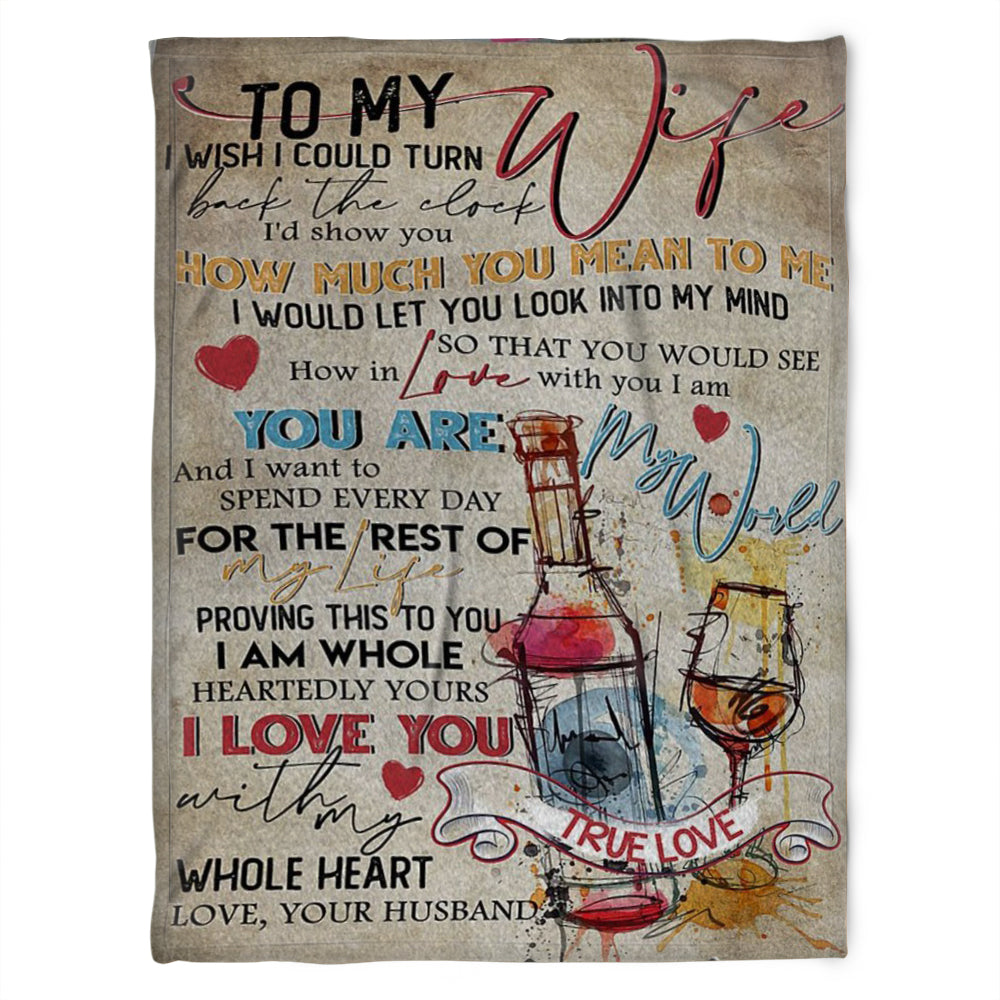 TO MY Wife
I WISH I COULD TURN
back the clock
I'd show you
HOW MUCH YOU MEAN TO ME
I WOULD LET YOU LOOK INTO MY MIND
SO THAT YOU WOULD SEE
How in Love with you I am
YOU ARE My World
And I want to
SPEND EVERY DAY
FOR THE REST OF
My Life
PROVING THIS TO YOU
I AM WHOLE
HEARTEDLY YOURS
I LOVE YOU
with my
WHOLE HEART
LOVE, YOUR HUSBAND
TRUE LOVE